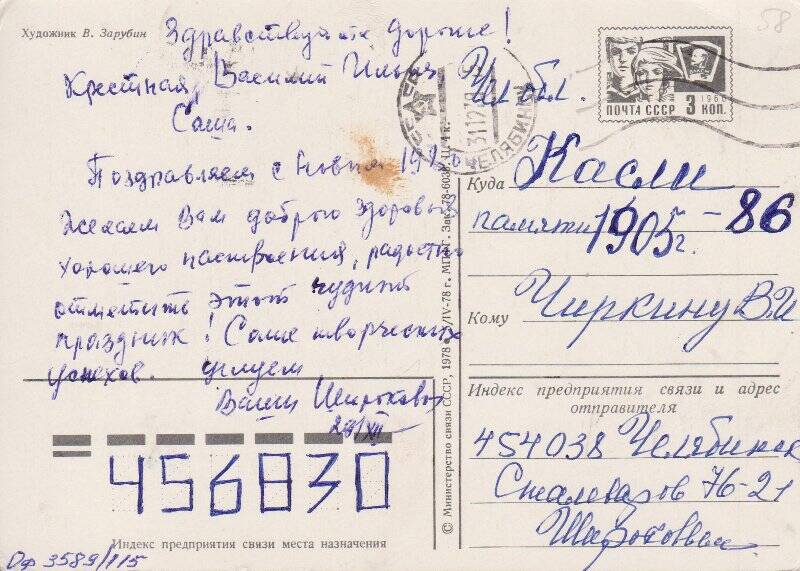 Художник В. Зарубин
Здравствуйте дорогие!
Крестная, Василий Ильич
Саша.
Поздравляем с Новым
Желаем Вам доброго здоровья
хорошего настроения, радостно
отметить этот чудный
праздник! Саше творческих
успехов. целуем
Ваши Широковы
58
ПОЧТА СССР 3 КОП.
1966
ЧЕЛЯБИНСК
Ч. обл.
Куда Касли
памяти 1905 г. - 86
Кому Чиркину В. И
Индекс предприятия связи и адрес
отправителя
454038 Челябинск
Сталеваров 76-21
Широковы
© Министерство связи СССР, 1978
456830
Индекс предприятия связи места назначения
Оф 3589/115